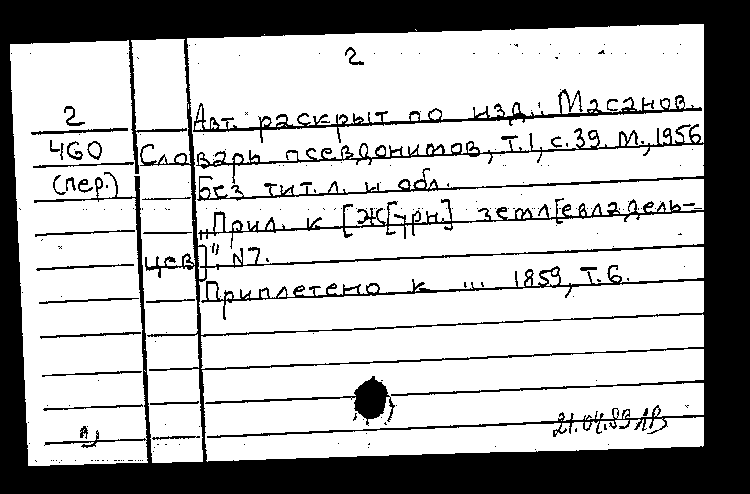 2
2 Авт. раскрыт по изд.: Масанов.
460 Словарь псевдонимов, т.1, с.39. М., 1956
(пер.) Без тит.л. и обл.
„Прил. к [Ж[урн.] земл[евладель-
цев]“. N7.
Приплетено к ... 1859, т.6.
21.04.89